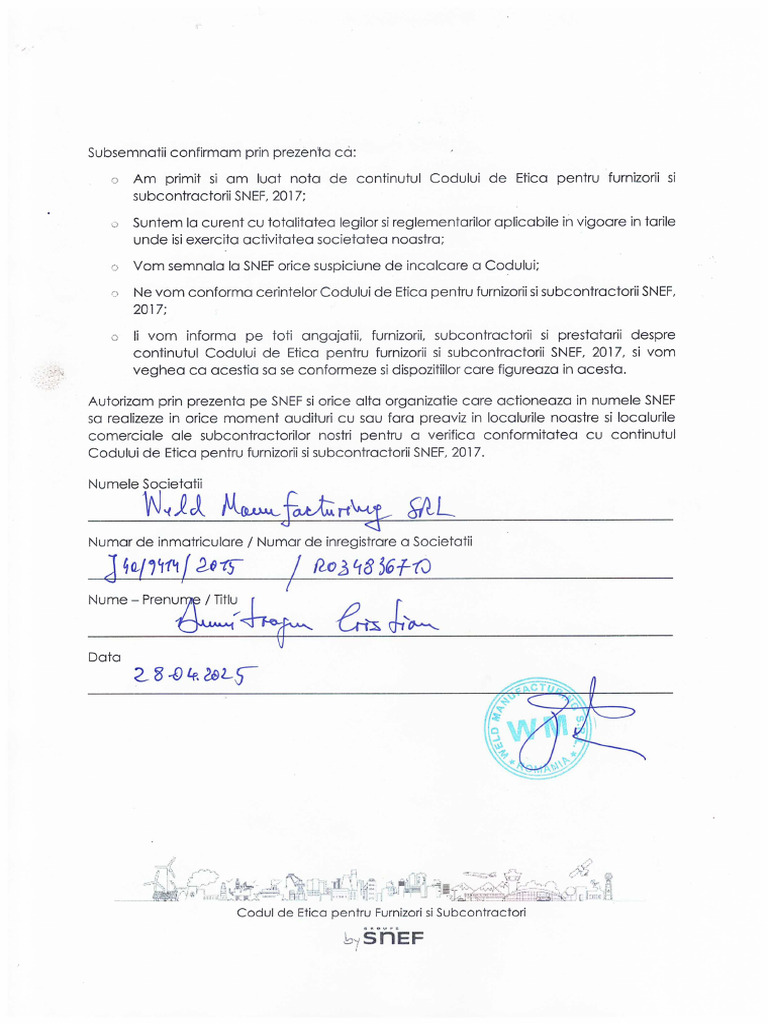 Subsemnatii confirmam prin prezenta ca:
o Am primit si am luat nota de continutul Codului de Etica pentru furnizorii si
subcontractorii SNEF, 2017;
o Suntem la curent cu totalitatea legilor si reglementarilor aplicabile in vigoare in tarile
unde isi exercita activitatea societatea noastra;
o Vom semnala la SNEF orice suspiciune de incalcare a Codului;
o Ne vom conforma cerintelor Codului de Etica pentru furnizorii si subcontractorii SNEF,
2017;
o Ii vom informa pe toti angajatii, furnizorii, subcontractorii si prestatarii despre
continutul Codului de Etica pentru furnizorii si subcontractorii SNEF, 2017, si vom
veghea ca acestia sa se conformeze si dispozitiilor care figureaza in acesta.
Autorizam prin prezenta pe SNEF si orice alta organizatie care actioneaza in numele SNEF
sa realizeze in orice moment audituri cu sau fara preaviz in localurile noastre si localurile
comerciale ale subcontractorilor nostri pentru a verifica conformitatea cu continutul
Codului de Etica pentru furnizorii si subcontractorii SNEF, 2017.
Numele Societatii
Weld Manufacturing SRL
Numar de inmatriculare / Numar de inregistrare a Societatii
J40/9414/2015 / RO34836710
Nume – Prenume / Titlu
Dumitrascu Cristian
Data
28.04.2025
WELD MANUFACTURING S.R.L.
WM
ROMANIA
Codul de Etica pentru Furnizori si Subcontractori
by GROUPE SNEF